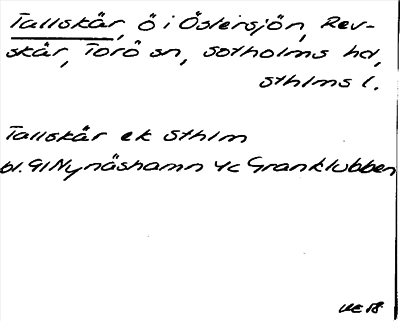 Tallskär, ö i Östersjön, Rev-
skär, Torö sn, Sotholms hd,
Sthlms l.
Tallskär ek Sthlm
bl. 91 Nynäshamn 4c Granklubben